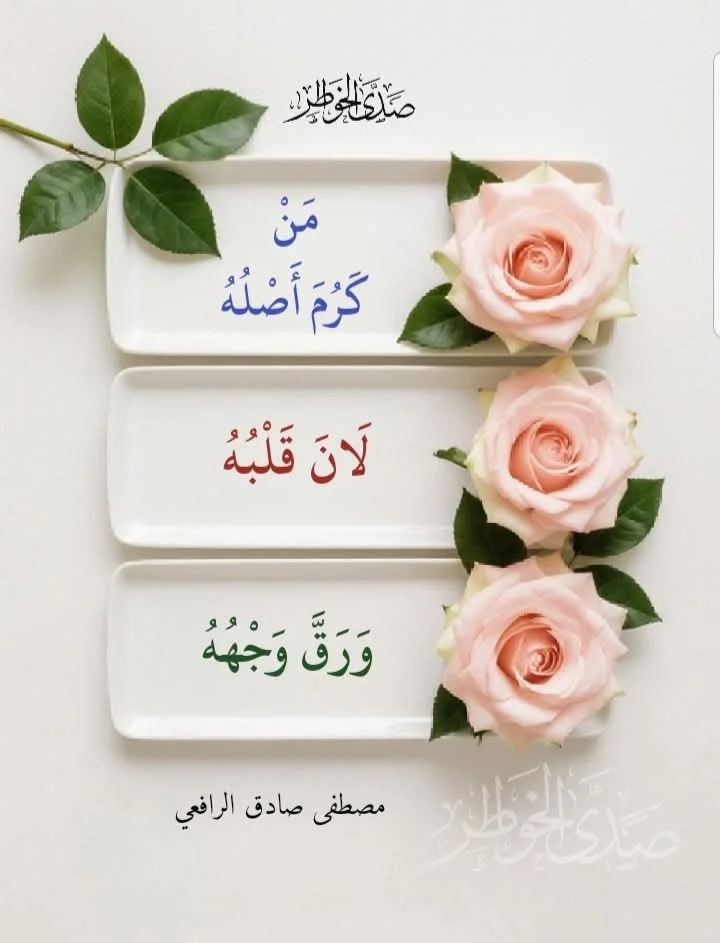 صَدَى الخَوَاطِر
مَنْ
كَرُمَ أَصْلُهُ
لَانَ قَلْبُهُ
وَرَقَّ وَجْهُهُ
مصطفى صادق الرافعي
صَدَى الخَوَاطِر